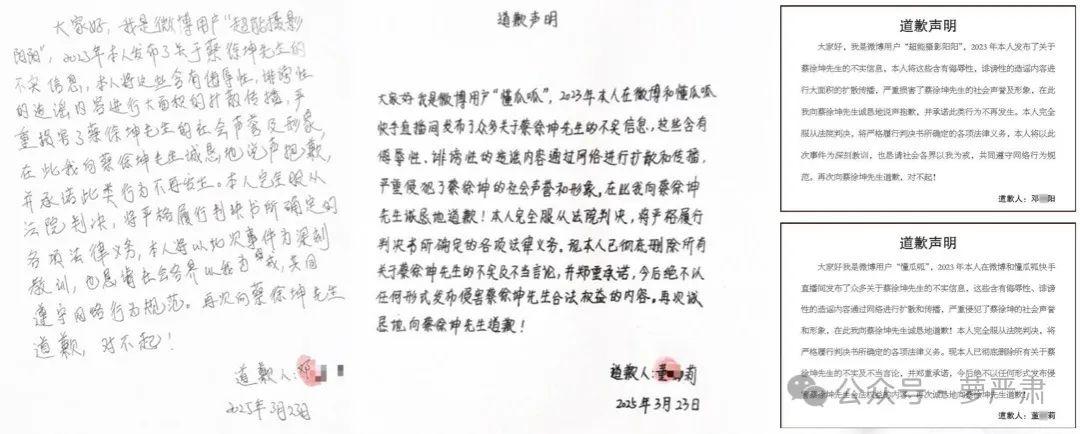 大家好,我是微博用户“超能摄影
阳阳”,2023年本人发布了关于蔡徐坤先生的
不实信息,本人将这些含有侮辱性、诽谤性
的造谣内容进行大面积的扩散传播,严
重损害了蔡徐坤先生的社会声誉及形象,
在此我向蔡徐坤先生诚恳地说声抱歉,
并承诺此类行为不再发生。本人完全服从
法院判决,将严格履行判决书所确定的
各项法律义务,本人将以此次事件为深刻
教训,也恳请社会各界以我为戒,共同
遵守网络行为规范。再次向蔡徐坤先生
道歉,对不起!
道歉人:邓
2025年3月23日
道歉声明
大家好我是微博用户“懂瓜呱”,2023年本人在微博和懂瓜呱
快手直播间发布了众多关于蔡徐坤先生的不实信息,这些含有
侮辱性、诽谤性的造谣内容通过网络进行扩散和传播,
严重侵犯了蔡徐坤的社会声誉和形象,在此我向蔡徐坤
先生诚恳地道歉!本人完全服从法院判决,将严格履行
判决书所确定的各项法律义务。现本人已彻底删除所有
关于蔡徐坤先生的不实及不当言论,并郑重承诺,今后绝不以
任何形式发布侵害蔡徐坤先生合法权益的内容。再次诚
恳地向蔡徐坤先生道歉!
道歉人:董 莉
2025年3月23日
道歉声明
大家好,我是微博用户“超能摄影阳阳”,2023年本人发布了关于
蔡徐坤先生的不实信息,本人将这些含有侮辱性、诽谤性的造谣内容进
行大面积的扩散传播,严重损害了蔡徐坤先生的社会声誉及形象,在此
我向蔡徐坤先生诚恳地说声抱歉,并承诺此类行为不再发生。本人完全
服从法院判决,将严格履行判决书所确定的各项法律义务,本人将以此
次事件为深刻教训,也恳请社会各界以我为戒,共同遵守网络行为规
范。再次向蔡徐坤先生道歉,对不起!
道歉人:邓 阳
道歉声明
大家好我是微博用户“懂瓜呱”,2023年本人在微博和懂瓜呱快手
直播间发布了众多关于蔡徐坤先生的不实信息,这些含有侮辱性、诽谤
性的造谣内容通过网络进行扩散和传播,严重侵犯了蔡徐坤的社会声誉
和形象,在此我向蔡徐坤先生诚恳地道歉!本人完全服从法院判决,将
严格履行判决书所确定的各项法律义务。现本人已彻底删除所有关于蔡
徐坤先生的不实及不当言论,并郑重承诺,今后绝不以任何形式发布侵
害蔡徐坤先生合法权益的内容。再次诚恳地向蔡徐坤先生道歉!
道歉人:董 莉
公众号·萝严肃